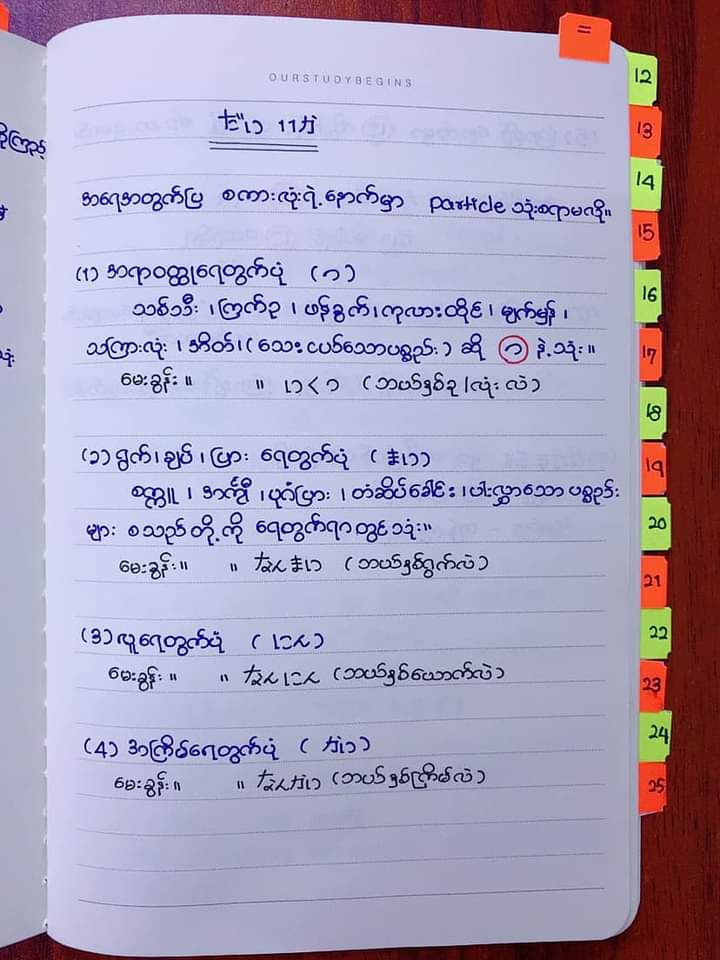 =
OURSTUDYBEGINS
だい 11 か
အရေအတွက်ပြ စကားလုံးရဲ့နောက်မှာ particle သုံးစရာမလို။
(၁) အရာဝတ္ထုရေတွက်ပုံ (つ)
သစ်သီး၊ ကြက်ဥ၊ ဖန်ခွက်၊ ကုလားထိုင်၊ မျက်မှန်၊
သကြားလုံး၊ အိတ်၊ (သေးငယ်သောပစ္စည်း) ဆို つ နဲ့သုံး။
မေးခွန်း။ " いくつ (ဘယ်နှစ်ခု/လုံး လဲ)
(၁) ရွက်၊ ချပ်၊ ပြား ရေတွက်ပုံ (まい)
စက္ကူ၊ အင်္ကျီ၊ ပုဂံပြား၊ တံဆိပ်ခေါင်း၊ ပါးလွှာသော ပစ္စည်း
များ စသည်တို့ကို ရေတွက်ရာတွင်သုံး။
မေးခွန်း။ " なんまい (ဘယ်နှစ်ရွက်လဲ)
(၃) လူရေတွက်ပုံ (にん)
မေးခွန်း။ " なんにん (ဘယ်နှစ်ယောက်လဲ)
(4) အကြိမ်ရေတွက်ပုံ (かい)
မေးခွန်း။ " なんかい (ဘယ်နှစ်ကြိမ်လဲ)
12
13
14
15
16
17
18
19
20
21
22
23
24
25